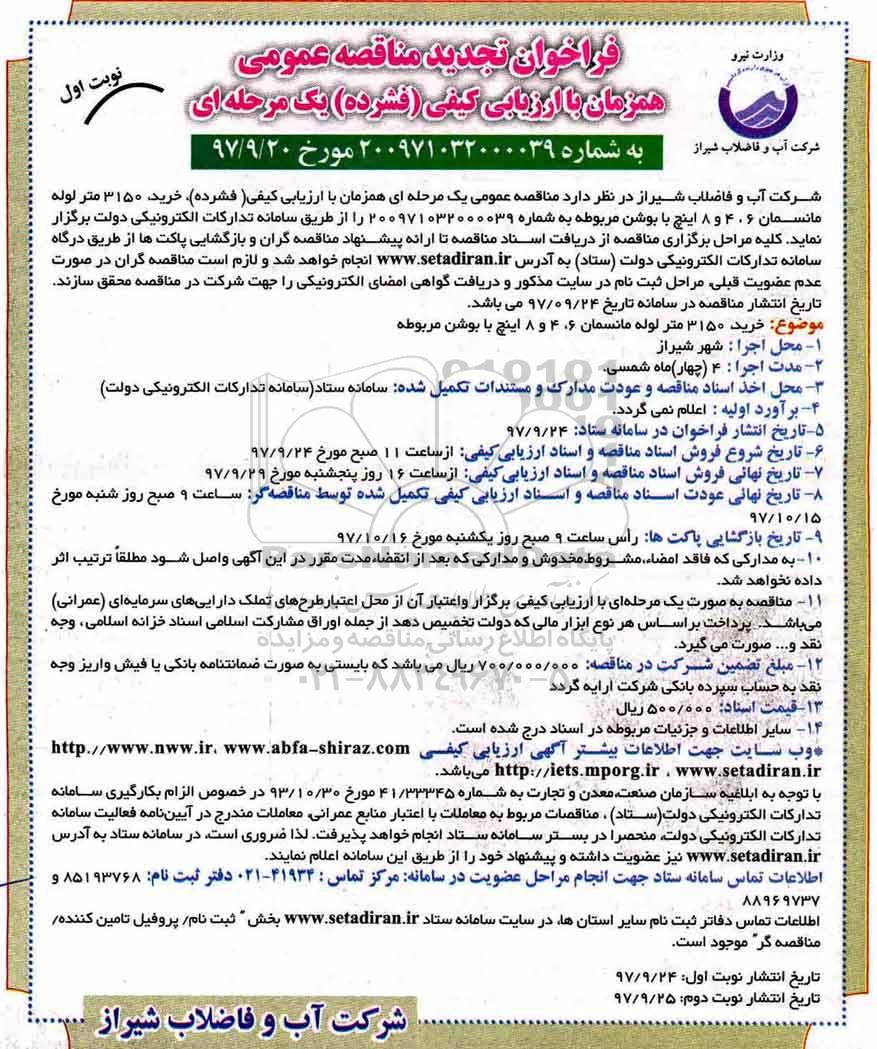 وزارت نیرو
شرکت آب و فاضلاب شیراز
فراخوان تجدید مناقصه عمومی
همزمان با ارزیابی کیفی (فشرده) یک مرحله ای
نوبت اول
به شماره ۲۰۰۹۷۱۰۳۲۰۰۰۰۳۹ مورخ ۹۷/۹/۲۰
شرکت آب و فاضلاب شیراز در نظر دارد مناقصه عمومی یک مرحله ای همزمان با ارزیابی کیفی( فشرده)، خرید، ۳۱۵۰ متر لوله
مانسمان ۶ ، ۴ و ۸ اینچ با بوشن مربوطه به شماره ۲۰۰۹۷۱۰۳۲۰۰۰۰۳۹ را از طریق سامانه تدارکات الکترونیکی دولت برگزار
نماید. کلیه مراحل برگزاری مناقصه از دریافت اسناد مناقصه تا ارائه پیشنهاد مناقصه گران و بازگشایی پاکت ها از طریق درگاه
سامانه تدارکات الکترونیکی دولت (ستاد) به آدرس www.setadiran.ir انجام خواهد شد و لازم است مناقصه گران در صورت
عدم عضویت قبلی، مراحل ثبت نام در سایت مذکور و دریافت گواهی امضای الکترونیکی را جهت شرکت در مناقصه محقق سازند.
تاریخ انتشار مناقصه در سامانه تاریخ ۹۷/۰۹/۲۴ می باشد.
موضوع: خرید، ۳۱۵۰ متر لوله مانسمان ۶، ۴ و ۸ اینچ با بوشن مربوطه
۱- محل اجرا : شهر شیراز
۲- مدت اجرا : ۴ (چهار)ماه شمسی.
۳- محل اخذ اسناد مناقصه و عودت مدارک و مستندات تکمیل شده: سامانه ستاد(سامانه تدارکات الکترونیکی دولت)
۴- برآورد اولیه : اعلام نمی گردد.
۵-تاریخ انتشار فراخوان در سامانه ستاد: ۹۷/۹/۲۴
۶- تاریخ شروع فروش اسناد مناقصه و اسناد ارزیابی‌کیفی: ازساعت ۱۱ صبح مورخ ۹۷/۹/۲۴
۷- تاریخ نهائی فروش اسناد مناقصه و اسناد ارزیابی‌کیفی: ازساعت ۱۶ روز پنجشنبه مورخ ۹۷/۹/۲۹
۸- تاریخ نهائی عودت اسناد مناقصه و اسناد ارزیابی کیفی تکمیل شده توسط مناقصه‌گر: ساعت ۹ صبح روز شنبه مورخ
۹۷/۱۰/۱۵
۹- تاریخ بازگشایی پاکت ها: رأس ساعت ۹ صبح روز یکشنبه مورخ ۹۷/۱۰/۱۶
۱۰-به مدارکی که فاقد امضاء،مشروط،مخدوش و مدارکی که بعد از انقضاءمدت مقرر در این آگهی واصل شود مطلقاً ترتیب اثر
داده نخواهد شد.
۱۱- مناقصه به صورت یک مرحله‌ای با ارزیابی کیفی برگزار واعتبار آن از محل اعتبارطرح‌های تملک دارایی‌های سرمایه‌ای (عمرانی)
می‌باشد. پرداخت براساس هر نوع ابزار مالی که دولت تخصیص دهد از جمله اوراق مشارکت اسلامی اسناد خزانه اسلامی ، وجه
نقد و... صورت می گیرد.
۱۲- مبلغ تضمین شرکت در مناقصه: ۷۰۰/۰۰۰/۰۰۰ ریال می باشد که بایستی به صورت ضمانتنامه بانکی یا فیش واریز وجه
نقد به حساب سپرده بانکی شرکت ارایه گردد
۱۳-قیمت اسناد: ۵۰۰/۰۰۰ ریال
۱۴- سایر اطلاعات و جزئیات مربوطه در اسناد درج شده است.
*وب سایت جهت اطلاعات بیشتر آگهی ارزیابی کیفی http.//www.nww.ir، www.abfa-shiraz.com
http://iets.mporg.ir ، www.setadiran.ir می‌باشد.
با توجه به ابلاغیه سازمان صنعت،معدن و تجارت به شماره ۴۱/۳۳۳۴۵ مورخ ۹۳/۱۰/۳۰ در خصوص الزام بکارگیری سامانه
تدارکات الکترونیکی دولت(ستاد) ، مناقصات مربوط به معاملات با اعتبار منابع عمرانی، معاملات مندرج در آیین‌نامه فعالیت سامانه
تدارکات الکترونیکی دولت، منحصرا در بستر سامانه ستاد انجام خواهد پذیرفت. لذا ضروری است، در سامانه ستاد به آدرس
www.setadiran.ir نیز عضویت داشته و پیشنهاد خود را از طریق این سامانه اعلام نمایند.
اطلاعات تماس سامانه ستاد جهت انجام مراحل عضویت در سامانه: مرکز تماس : ۴۱۹۳۴-۰۲۱ دفتر ثبت نام: ۸۵۱۹۳۷۶۸ و
۸۸۹۶۹۷۳۷
اطلاعات تماس دفاتر ثبت نام سایر استان ها، در سایت سامانه ستاد www.setadiran.ir بخش " ثبت نام/ پروفیل تامین کننده/
مناقصه گر" موجود است.
تاریخ انتشار نوبت اول: ۹۷/۹/۲۴
تاریخ انتشار نوبت دوم: ۹۷/۹/۲۵
شرکت آب و فاضلاب شیراز
پایگاه اطلاع رسانی مناقصه و مزایده
۰۲۱-۸۸۳۴۹۶۷۰-۵